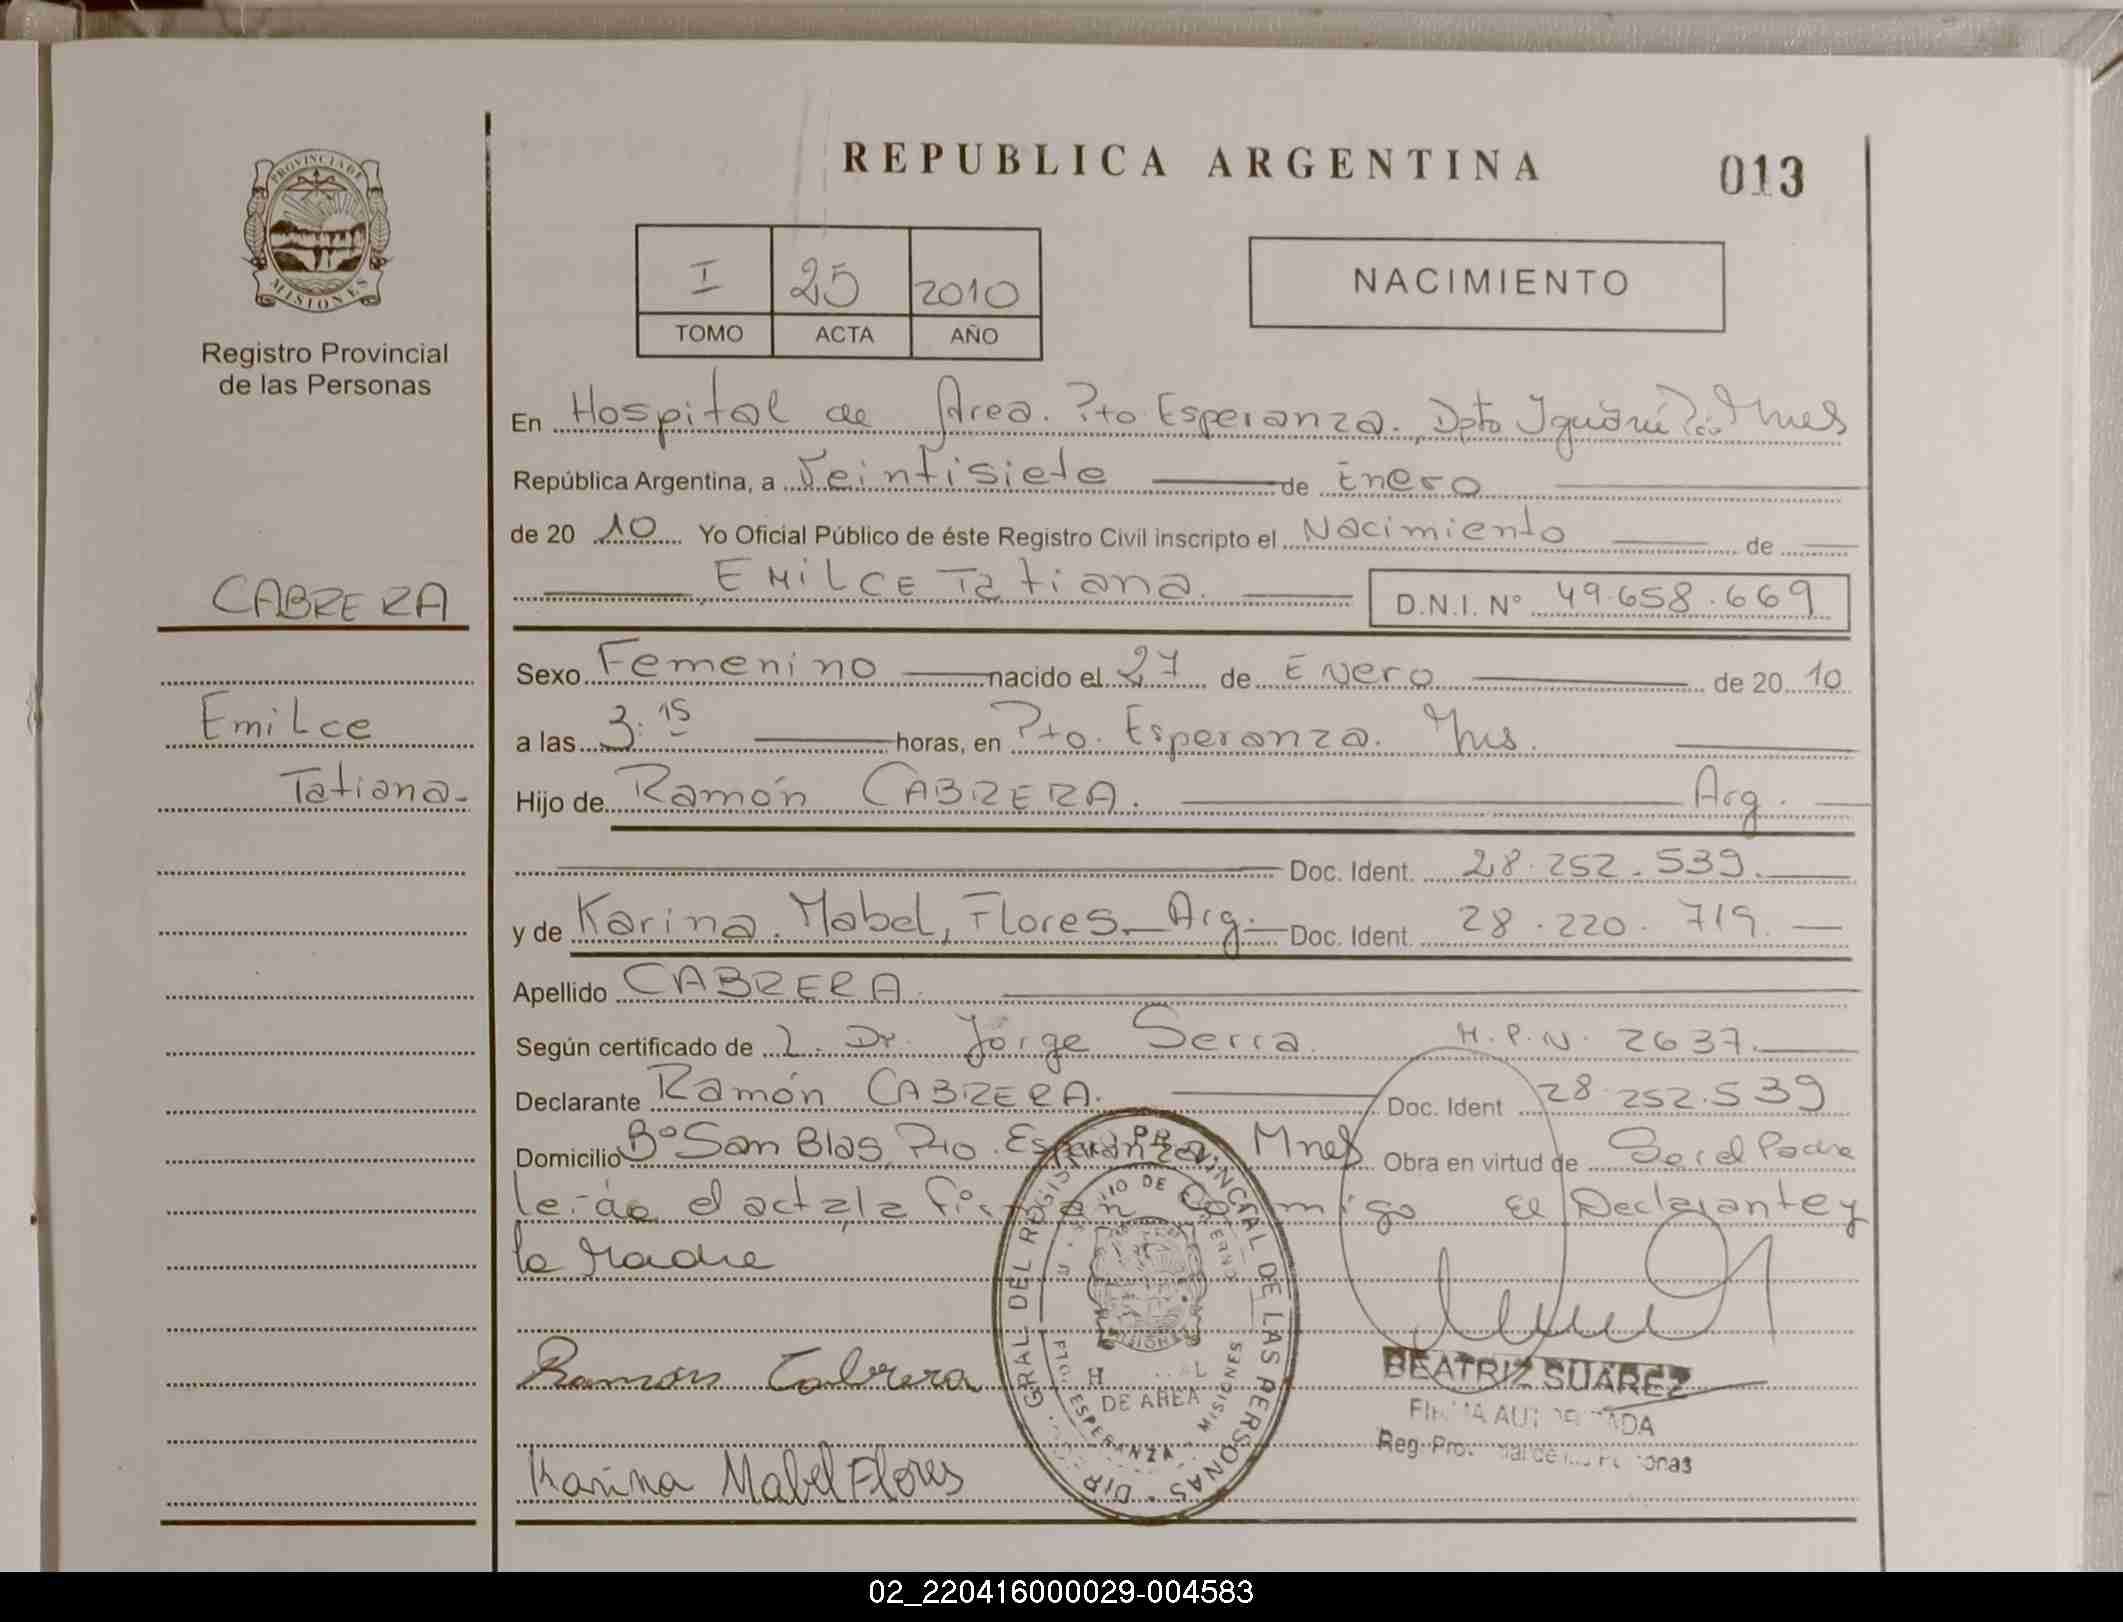 REPUBLICA ARGENTINA
013
PROVINCIA DE
MISIONES
Registro Provincial
de las Personas
I 25 2010
TOMO ACTA AÑO
NACIMIENTO
En Hospital de Area. Pto Esperanza. Dpto Iguazú Mnes
República Argentina, a Veintisiete de Enero
de 20 10 Yo Oficial Público de éste Registro Civil inscripto el Nacimiento de
CABRERA
Emilce
Tatiana.
EMILCE Tatiana. D.N.I. Nº 49.658.669
Sexo Femenino nacido el 27 de Enero de 20 10
a las 3.15 horas, en Pto. Esperanza. Mns.
Hijo de Ramón CABRERA. Arg.
Doc. Ident. 28.252.539.
y de Karina Mabel, Flores. Arg. Doc. Ident. 28.220.719.
Apellido CABRERA
Según certificado de Dr. Jorge Serra. M.P.N. 2637.
Declarante Ramón CABRERA. Doc. Ident 28 252.539
Domicilio Bº San Blas, Pto. Esperanza. Mnes Obra en virtud de Ser el Padre
el acta, la firman Conmigo El Declarante y
la Madre
Ramón Cabrera
Karina Mabel Flores
DIR. GRAL DEL REGISTRO PROVINCIAL DE LAS PERSONAS
DE AREA
PTO. ESPERANZA - MISIONES
BEATRIZ SUAREZ
FIRMA AUTORIZADA
Reg. Provincial de las Personas
02_220416000029-004583